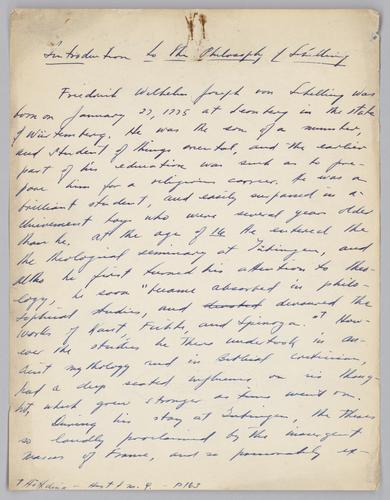 Introduction to The Philosophy of Schelling
Friedrich Wilhelm Joseph von Schelling was
born on January 27, 1775 at Leonberg in the state
of Würtemberg. He was the son of a minister,
and student of things oriental, and the earlier
part of his education was such as to pre-
pare him for a religious career. He was a
brilliant student, and easily surpassed in a-
chievement boys who were several years older
than he. At the age of 16 he entered the
the theological seminary at Tübingen, and
altho he first turned his attention to theo-
logy, he soon "became absorbed in philo-
sophical studies, and devoured the
works of Kant, Fichte, and Spinoza." † How-
ever the studies he there undertook in an-
cient mythology and in Biblical criticism,
had a deep seated influence on his thoug-
ht, which grew stronger as time went on.
During his stay at Tübingen, the theories
so loudly proclaimed by the insurgent
masses of France, and so passionately ex-
† Höffding - Hist of m. P. - p163